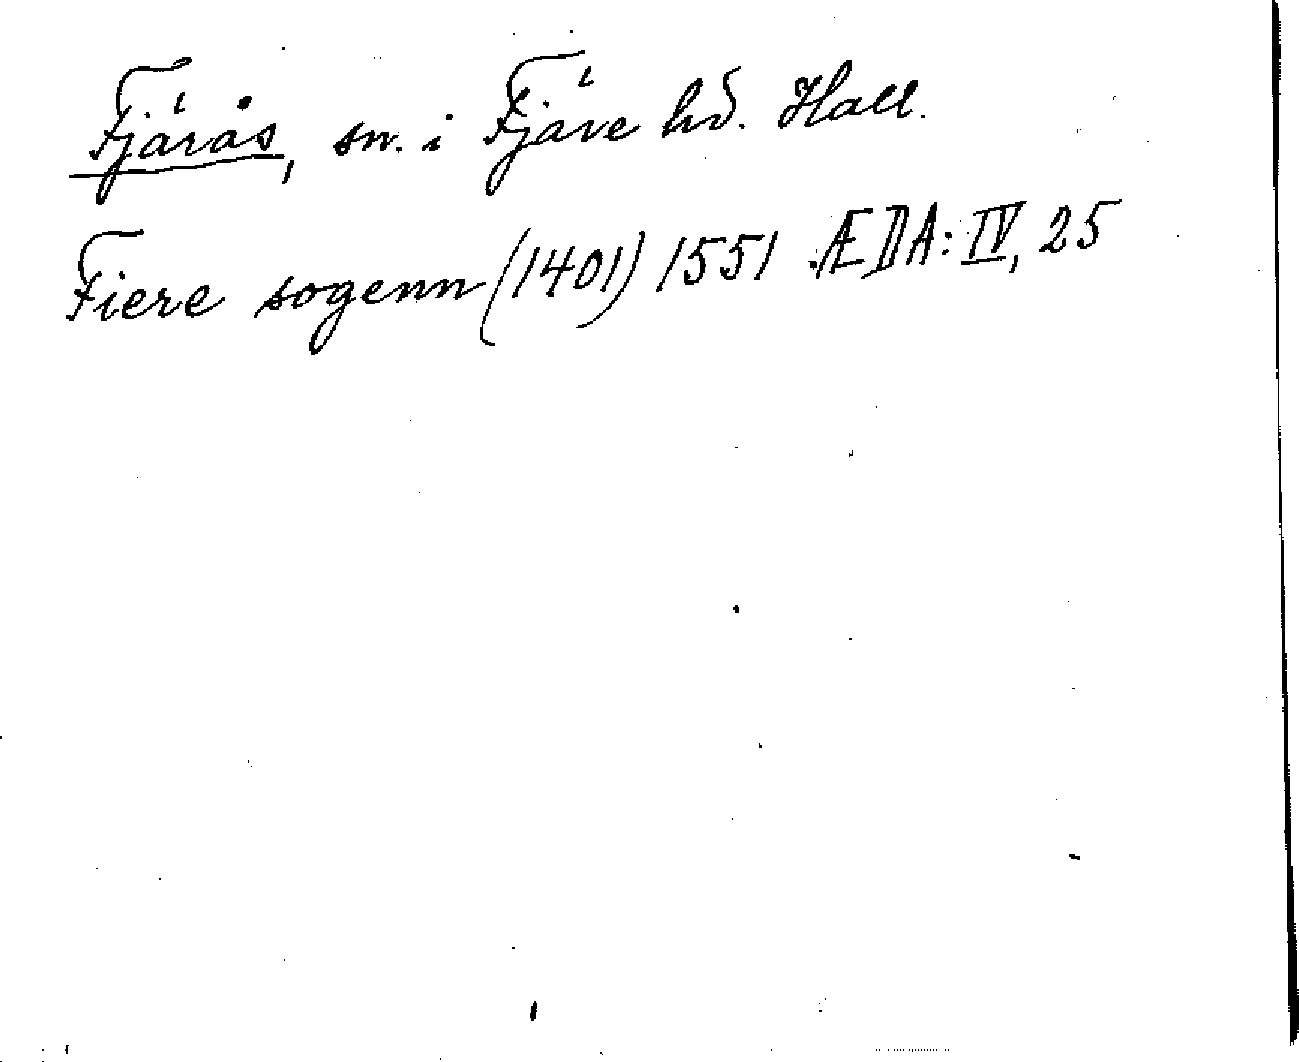 Fjärås, sn. i Fjäre hd. Hall.
Fiere sogenn (1401) 1551 ÆDA: IV, 25